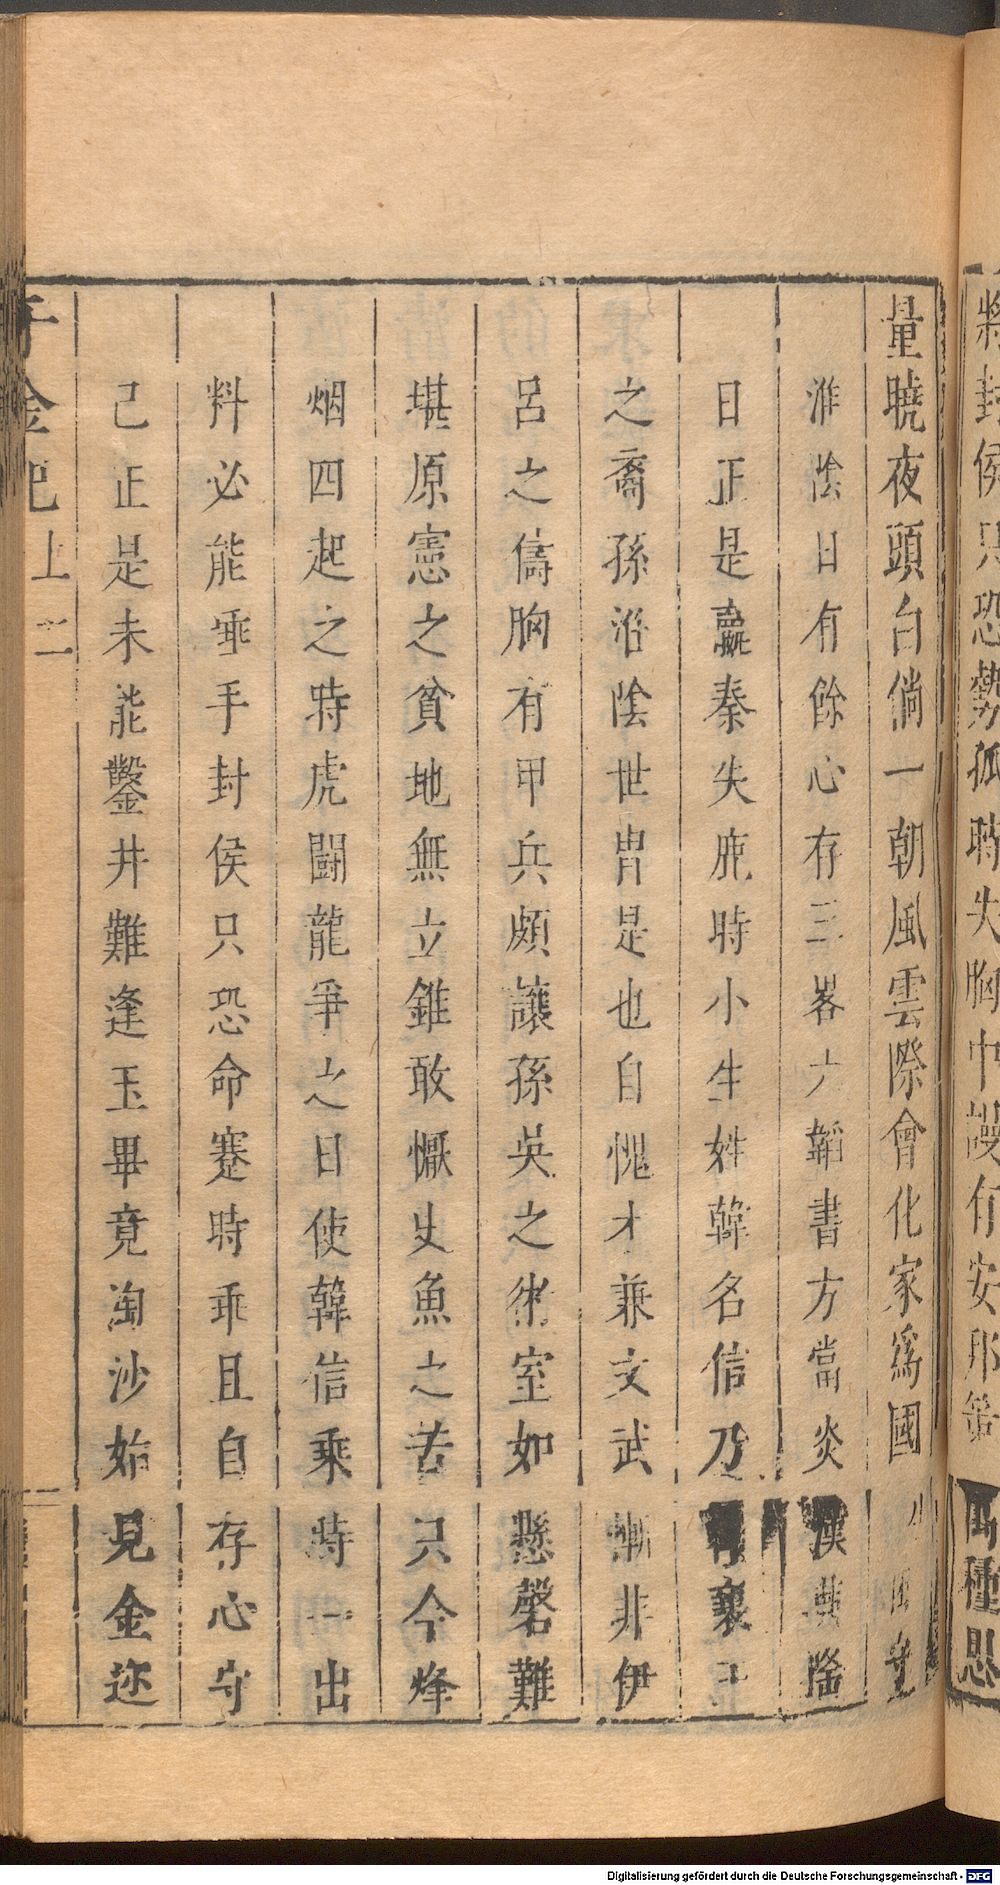 將封侯只恐勢孤時失胸中謾有安邦策
四種思
量曉夜頭白倘一朝風雲際會化家爲國
淮陰日有餘心存三畧六韜書方當炎漢興隆
日正是嬴秦失鹿時小生姓韓名信乃 襄王
之裔孫淮陰世冑是也自愧才兼文武慚非伊
呂之儔胸有甲兵頗讓孫吳之術室如懸磬難
堪原憲之貧地無立錐敢慨丈魚之苦只今烽
烟四起之時虎鬪龍爭之日使韓信乘時一出
料必能垂手封侯只恐命蹇時乖且自存心守
己正是未能鑿井難逢玉畢竟淘沙始見金迩
千金記上 二
Digitalisierung gefördert durch die Deutsche Forschungsgemeinschaft - DFG